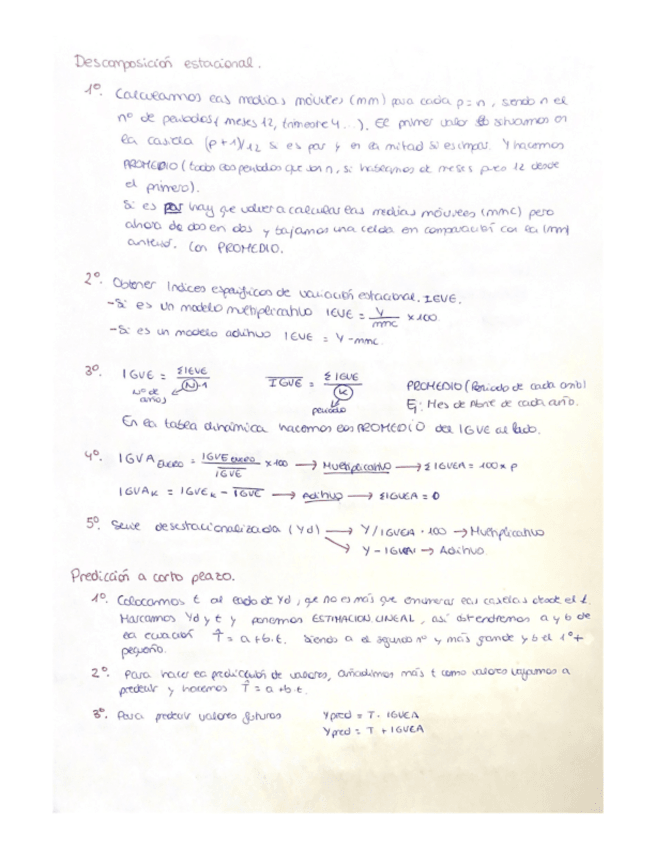 Descomposición estacional.
1º. Calculamos las medias móviles (mm) para cada p=n, siendo n el
nº de periodos (meses 12, trimestre 4..). El primer valor lo situamos en
la casilla (p+1)/12 si es par y en la mitad si es impar. Y hacemos
PROMEDIO (todos los periodos que son n, si hablamos de meses pues 12 desde
el primero).
Si es par hay que volver a calcular las medias móviles (mmc) pero
ahora de dos en dos y bajamos una celda en comparación con la (mm)
anterior. Con PROMEDIO.
2º. Obtener Indices específicos de variación estacional. IEVE.
- Si es un modelo multiplicativo IEVE = Y/mmc x100.
- Si es un modelo aditivo IEVE = Y-mmc.
3º. IGVE = ΣIEVE/(N)-1 IGVE = ΣIGVE/K PROMEDIO (Periodo de cada año)
Nº de años periodo Ej: Mes de Abril de cada año.
En la tabla dinámica hacemos los PROMEDIO del IGVE al lado.
4º. IGVA ENERO = IGVE ENERO/IGVE x100 → Multiplicativo → ΣIGVEA = 100xp
IGVAK = IGVEK - IGVE → Aditivo → ΣIGVEA = 0
5º. Serie desestacionalizada (Yd) → Y/IGVEA · 100 → Multiplicativo
→ Y-IGVEA → Aditivo
Predicción a corto plazo.
1º. Colocamos t al lado de Yd, que no es más que enumerar las casillas desde el 1.
Marcamos Yd y t y ponemos ESTIMACION.LINEAL, así obtendremos a y b de
la ecuación T̂ = a+b·t. Siendo a el segundo nº y más grande y b el 1º+
pequeño.
2º. Para hacer la predicción de valores, añadimos más t como valores vayamos a
predecir y hacemos T̂ = a+b·t.
3º. Para predecir valores futuros Ypred = T· IGVEA
Ypred = T + IGVEA